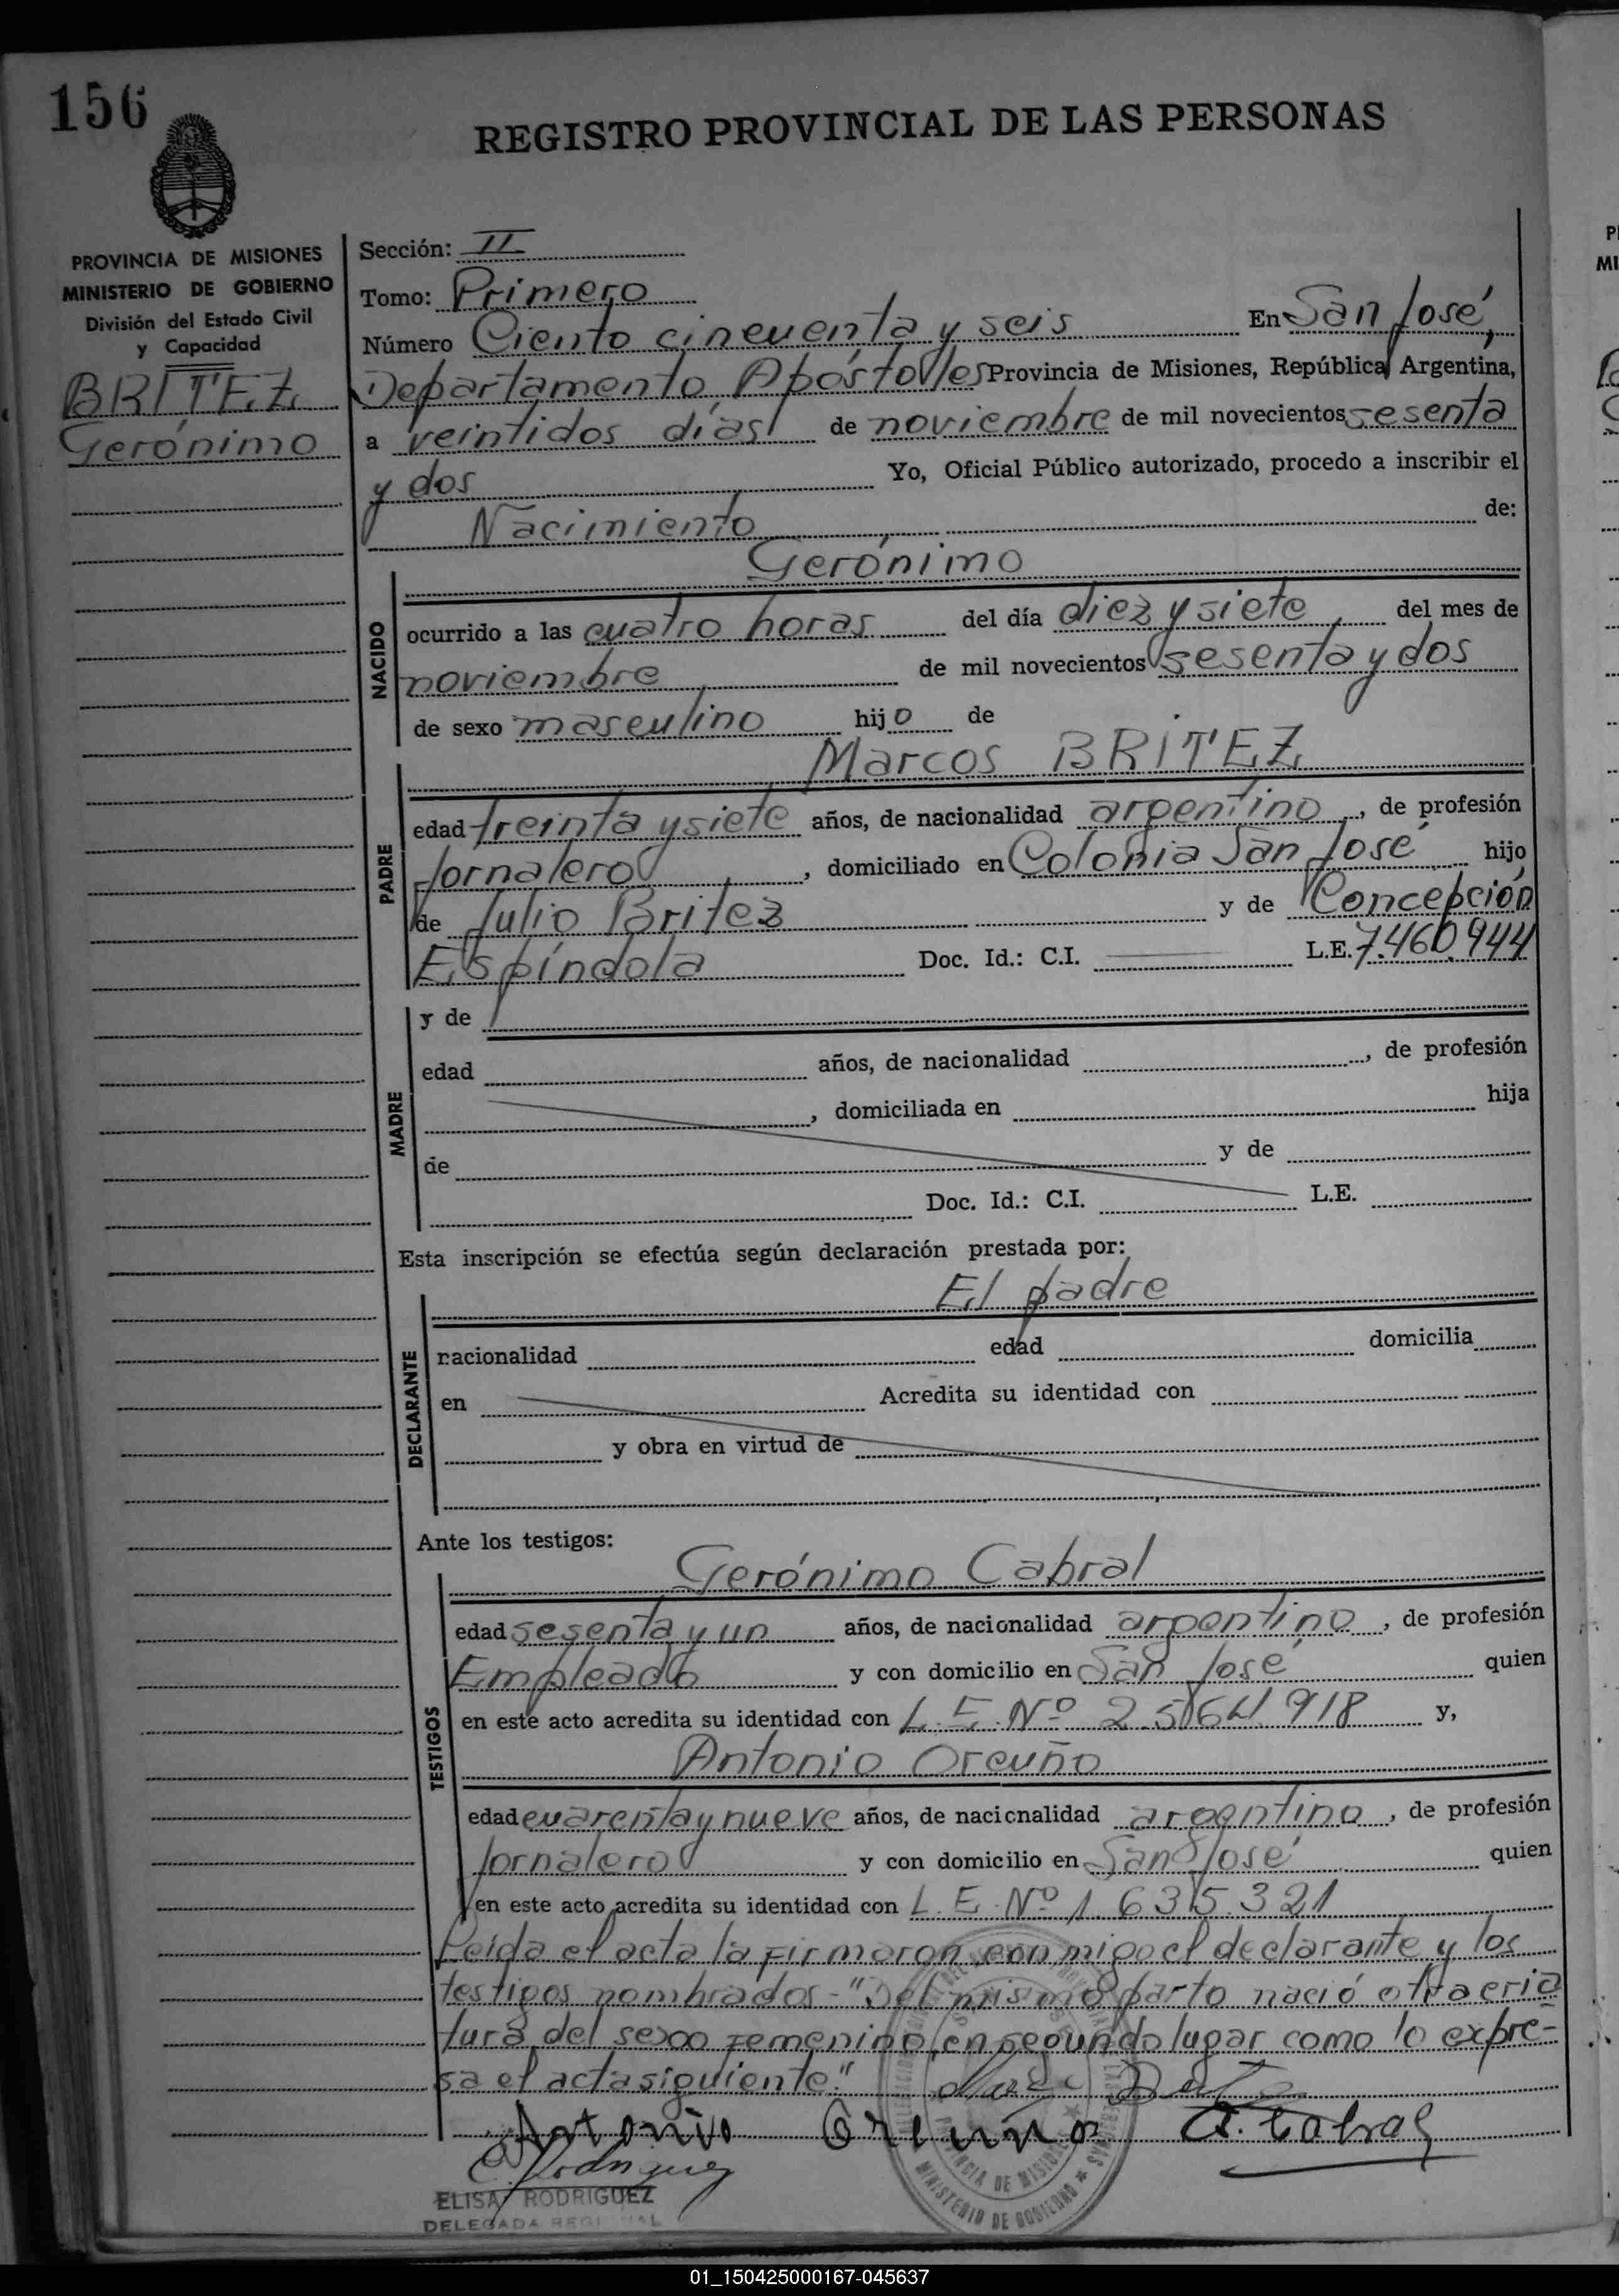 156
REGISTRO PROVINCIAL DE LAS PERSONAS
PROVINCIA DE MISIONES
MINISTERIO DE GOBIERNO
División del Estado Civil
y Capacidad
BRITEZ
Gerónimo
Sección: II
Tomo: Primero
Número Ciento cincuenta y seis En San José,
Departamento Apóstoles Provincia de Misiones, República Argentina,
a veintidos días de noviembre de mil novecientos sesenta
y dos Yo, Oficial Público autorizado, procedo a inscribir el
Nacimiento de:
Gerónimo
NACIDO
ocurrido a las cuatro horas del día diez y siete del mes de
noviembre de mil novecientos sesenta y dos
de sexo masculino hijo de
Marcos BRITEZ
PADRE
edad treinta y siete años, de nacionalidad argentino, de profesión
Jornalero, domiciliado en Colonia San José hijo
de Julio Britez y de Concepción
Espíndola Doc. Id.: C.I. L.E. 7.460.944
MADRE
y de
edad años, de nacionalidad , de profesión
, domiciliada en hija
de y de
Doc. Id.: C.I. L.E.
Esta inscripción se efectúa según declaración prestada por:
El padre
DECLARANTE
nacionalidad edad domicilia
en Acredita su identidad con
y obra en virtud de
Ante los testigos:
Gerónimo Cabral
TESTIGOS
edad sesenta y un años, de nacionalidad argentino, de profesión
Empleado y con domicilio en San José quien
en este acto acredita su identidad con L.E. Nº 2.564.918 y,
Antonio Orcuño
edad cuarenta y nueve años, de nacionalidad argentino, de profesión
Jornalero y con domicilio en San José quien
en este acto acredita su identidad con L.E. Nº 1.635.321
Leída el acta la firmaron conmigo el declarante y los
testigos nombrados - "Del mismo parto nació otra cria
tura del sexo femenino en segundo lugar como lo expre-
sa el acta siguiente."
Antonio Orcuño G. Cabral
E. Rodriguez
ELISA RODRIGUEZ
DELEGADA REGIONAL
PROVINCIA DE MISIONES
MINISTERIO DE GOBIERNO
01_150425000167-045637